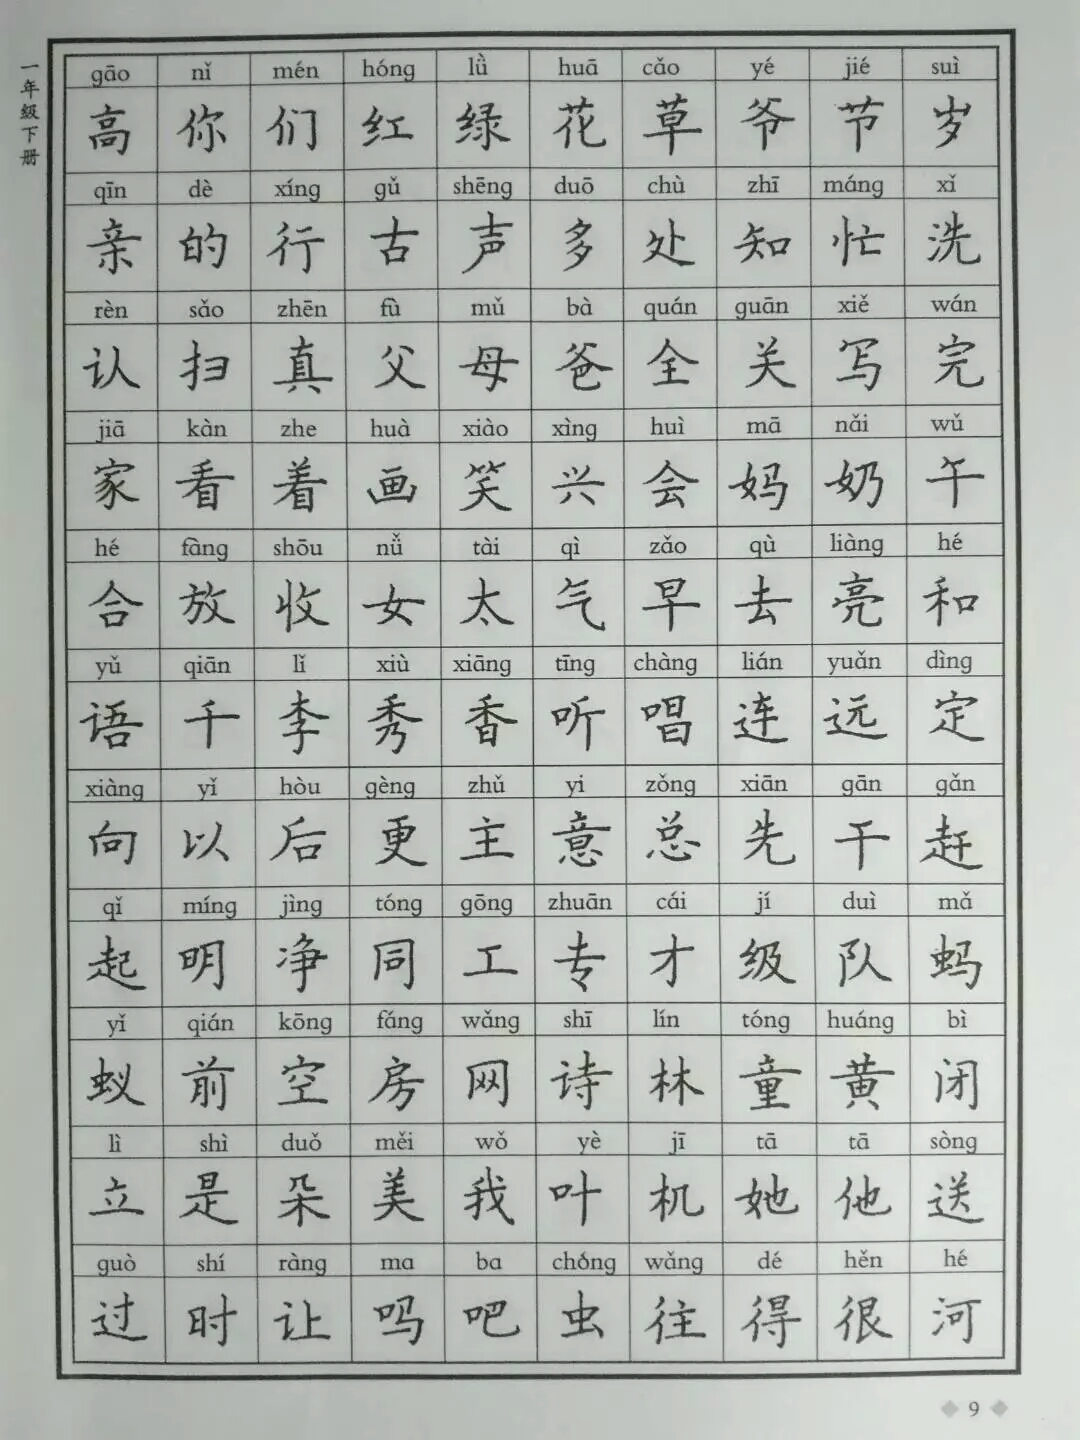 一年级下册
gāo nǐ mén hóng lǜ huā cǎo yé jié suì
高 你 们 红 绿 花 草 爷 节 岁
qīn dè xíng gǔ shēng duō chù zhī máng xǐ
亲 的 行 古 声 多 处 知 忙 洗
rèn sǎo zhēn fù mǔ bà quán guān xiě wán
认 扫 真 父 母 爸 全 关 写 完
jiā kàn zhe huà xiào xìng huì mā nǎi wǔ
家 看 着 画 笑 兴 会 妈 奶 午
hé fàng shōu nǚ tài qì zǎo qù liàng hé
合 放 收 女 太 气 早 去 亮 和
yǔ qiān lǐ xiù xiāng tīng chàng lián yuǎn dìng
语 千 李 秀 香 听 唱 连 远 定
xiàng yǐ hòu gèng zhǔ yi zǒng xiān gān gǎn
向 以 后 更 主 意 总 先 干 赶
qǐ míng jìng tóng gōng zhuān cái jí duì mǎ
起 明 净 同 工 专 才 级 队 蚂
yǐ qián kōng fáng wǎng shī lín tóng huáng bì
蚁 前 空 房 网 诗 林 童 黄 闭
lì shì duǒ měi wǒ yè jī tā tā sòng
立 是 朵 美 我 叶 机 她 他 送
guò shí ràng ma ba chóng wǎng dé hěn hé
过 时 让 吗 吧 虫 往 得 很 河
9